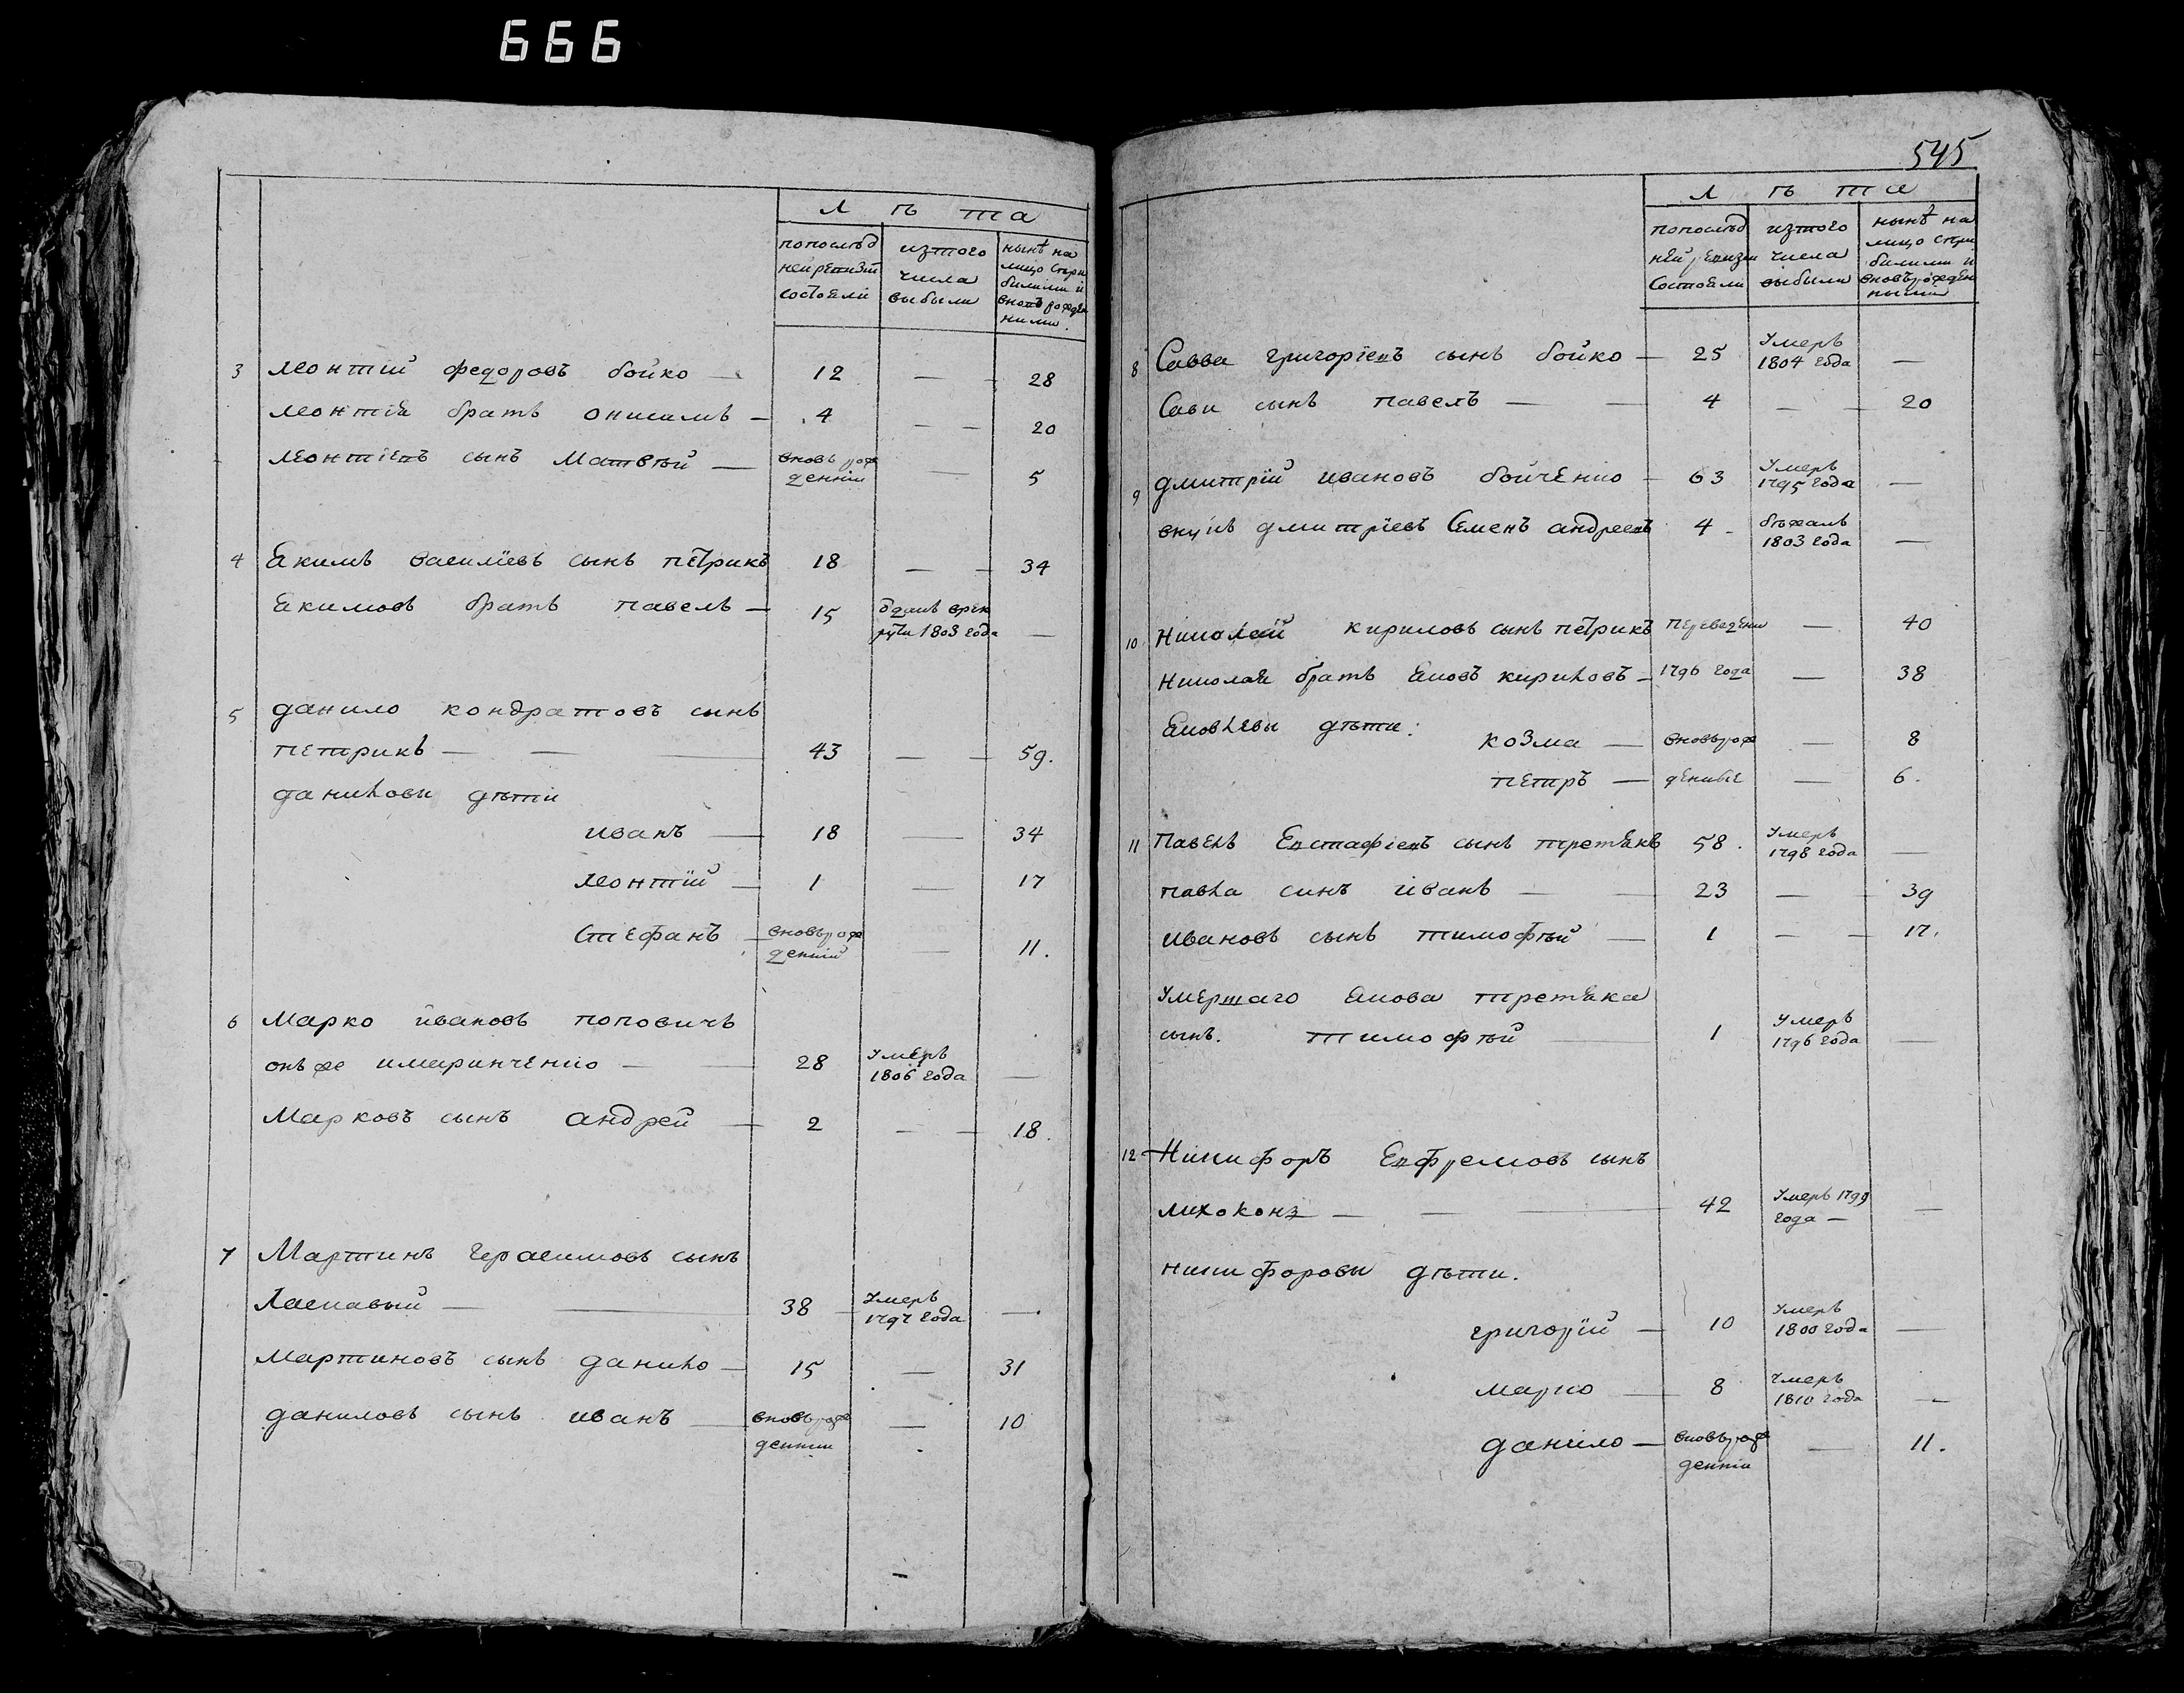 666
Л ѣ та
попослѣд изтого нынѣ на
ней ревизіи числа лицо съ при
состояли выбыли былыми и
вновь рожден
ными.
3 Леонтій федоровъ бойко — 12 — 28
Леонтія братъ онисимъ — 4 — 20
Леонтіевъ сынъ Матвѣй — вновь рож — 5
денній
4 Якимъ василіевъ сынъ петрикъ 18 — 34
Якимовъ братъ павелъ — 15 отданъ врек —
рути 1803 года
5 данило кондратовъ сынъ
петрикъ — 43 — 59.
данилови дѣти
иванъ — 18 — 34
леонтій — 1 — 17
Стефанъ — вновьрож — 11.
денній
6 Марко ивановъ поповичъ
онъ же 28 умеръ —
1806 года
Марковъ сынъ андрей — 2 — 18.
7 Мартинъ герасимовъ сынъ
Ласкавый — 38 Умеръ —
1797 года
Мартиновъ сынъ данило — 15 — 31
даниловъ сынъ иванъ — вновьрож — 10
денній
545
Л ѣ та
попослѣд изтого нынѣ на
ней ревизіи числа лицо съ при
состояли выбыли былыми и
вновьрожден
ными
8 Савва григоріевъ сынъ бойко — 25 Умеръ —
1804 года
Сави сынъ павелъ — 4 — 20
9 дмитрій ивановъ бойченко — 63 Умеръ —
1795 года
внукъ дмитріевъ Семенъ андреевъ 4 - бѣжалъ —
1803 года
10 Николай кириловъ сынъ петрикъ переведени — 40
Николая братъ Яковъ кириловъ — 1796 года — 38
Яковлеви дѣти: козма — вновьрож — 8
петръ — денные — 6.
11 Павелъ Евстафіевъ сынъ третякъ 58. Умеръ —
1798 года
павла синъ иванъ — 23 — 39
ивановъ сынъ тимофѣй — 1 — 17.
Умершаго Якова третяка
сынъ. тимофѣй — 1 Умеръ —
1796 года
12 Никифоръ Ефремовъ сынъ
лихоконь — 42 Умеръ 1799 —
года —
никифорови дѣти.
григорій — 10 Умеръ —
1800 года
марко — 8 Умеръ —
1810 года
данило — вновьрож — 11.
денній